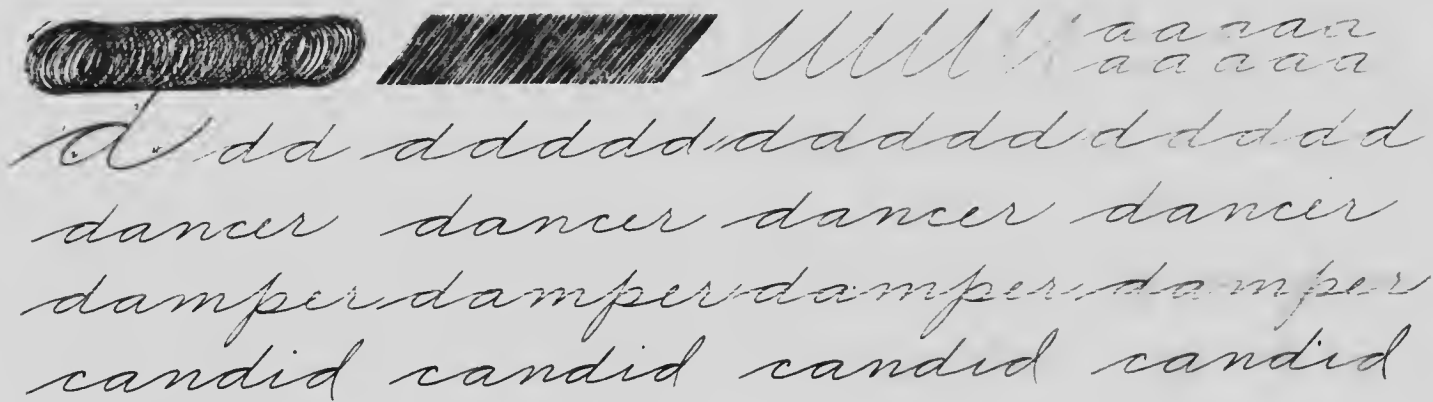 a a a a a
a a a a a
d dd ddddd ddddd ddddd
dancer dancer dancer dancer
damper damper damper damper
candid candid candid candid